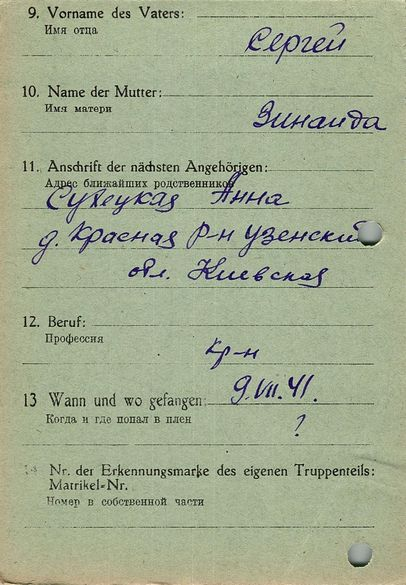 9. Vorname des Vaters:
Имя отца
Сергей
10. Name der Mutter:
Имя матери
Зинаида
11. Anschrift der nächsten Angehörigen:
Адрес ближайших родственников
Анна
д. Красная Р-н Узенский
обл. Киевская
12. Beruf:
Профессия
кр-н
13 Wann und wo gefangen:
9.VII.41.
Когда и где попал в плен
?
Nr. der Erkennungsmarke des eigenen Truppenteils:
Matrikel-Nr.
Номер в собственной части